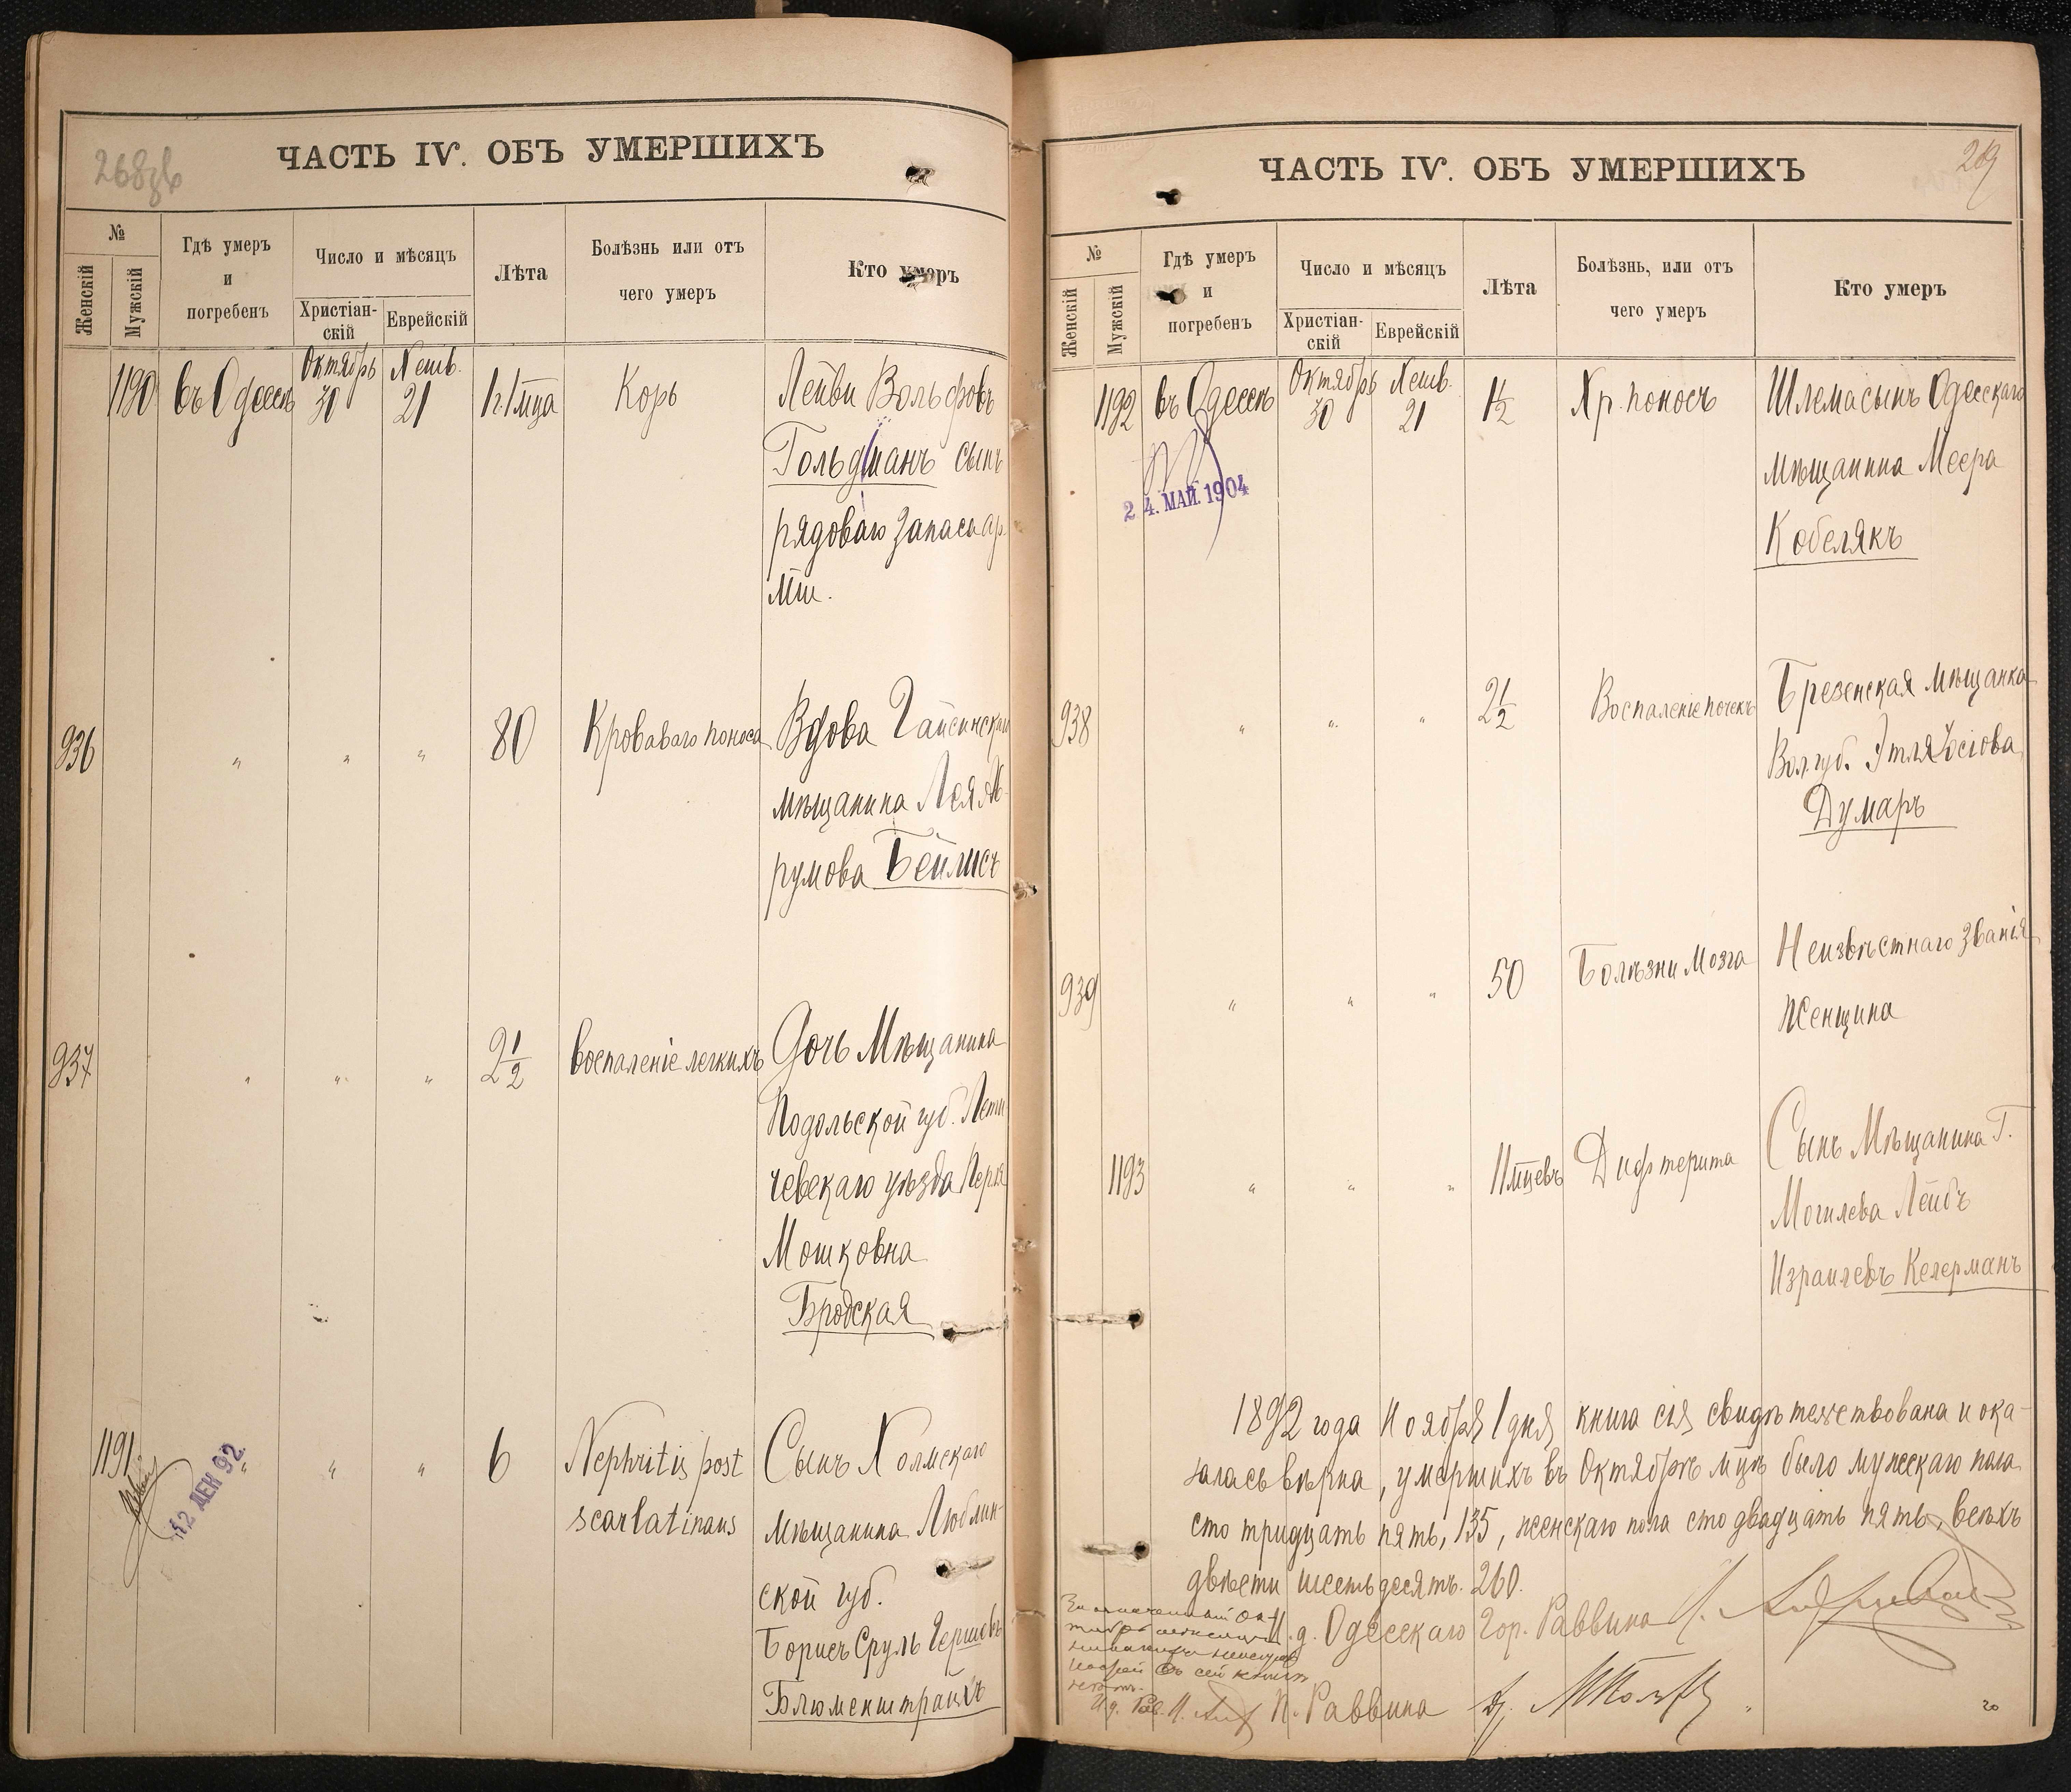 268
ЧАСТЬ IV. ОБЪ УМЕРШИХЪ
№
Женскій
Мужскій
Гдѣ умеръ
и
погребенъ
Число и мѣсяцъ
Христіан-
скій
Еврейскій
Лѣта
Болѣзнь или отъ
чего умеръ
Кто умеръ
1190 въ Одессѣ Октябрь 30 Хешв. 21 1 г. 1 мца Корь Лейви Вольфовъ
Гольдманъ сынъ
рядоваго запаса ар-
міи.
936 " " " 80 Кроваваго поноса Вдова Гайсинскаго
мѣщанина Лея
румова Бейлисъ
937 " " " 2 1/2 воспаленіе легкихъ Дочь Мѣщанина
Подольской губ. Лети
чевскаго уѣзда Перля
Мошковна
Бродская
1191 " " " 6 Nephritis post Сынъ Холмскаго
scarlatinaus мѣщанина Люблин-
ской губ.
Борисъ Сруль Гершовъ
Блюменштраихъ
12 ДЕК 92
269
ЧАСТЬ IV. ОБЪ УМЕРШИХЪ
№
Женскій
Мужскій
Гдѣ умеръ
и
погребенъ
Число и мѣсяцъ
Христіан-
скій
Еврейскій
Лѣта
Болѣзнь, или отъ
чего умеръ
Кто умеръ
1192 въ Одессѣ Октябрь 30 Хешв. 21 1 1/2 Хр. поносъ Шлема сынъ Одесскаго
мѣщанина Меера
Кобелякъ
24. МАЙ. 1904
938 " " " 2 1/2 Воспаленіе почекъ Брезенская мѣщанка
Вол. губ. Этля Іосіова
Думаръ
939 " " " 50 Болѣзни Мозга Неизвѣстнаго Званія
Женщина
1193 " " " 11 мцевъ Дифтерита Сынъ Мѣщанина Г.
Могилева Лейбъ
Израилевъ Келерманъ
1892 года Ноября 1 дня книга сія свидѣтельствована и ока-
залась вѣрна, умершихъ въ Октябрѣ мцѣ было мужескаго пола
сто тридцать пять, 135, женскаго пола сто двадцать пять, всѣхъ
двѣсти шестьдесятъ. 260.
И. д. Одесскаго Гор. Раввина
П. Раввина
20